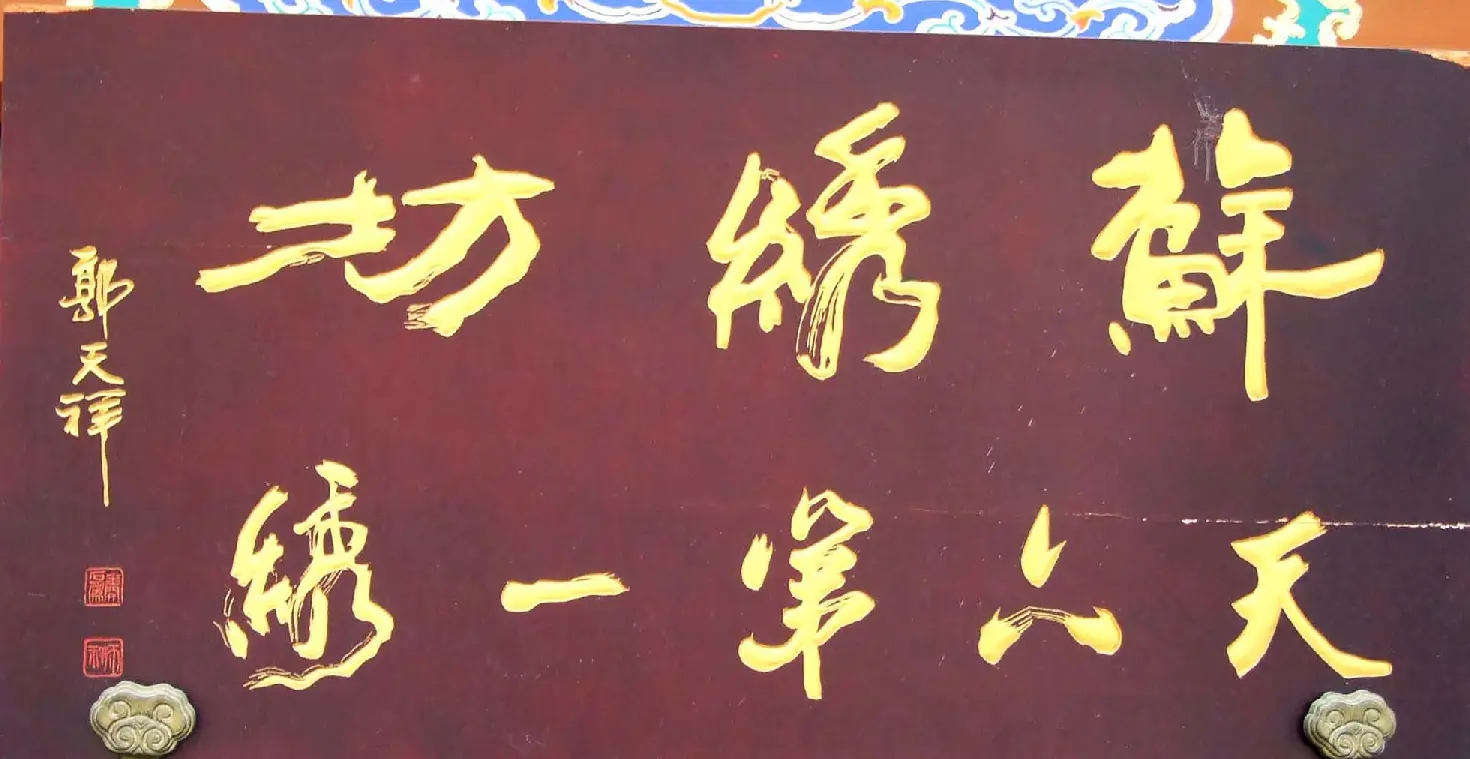 蘇綉坊
天下第一綉
郭天祥